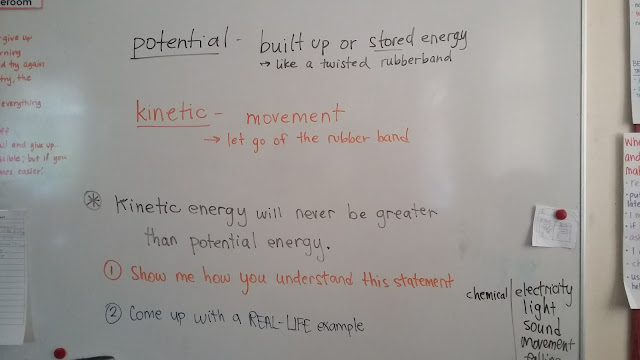 eroom
give up
rning
d try again
try, the
everything
and give up.
but if you
easier!
potential - built up or stored energy
→ like a twisted rubberband
kinetic - movement
→ let go of the rubber band
* Kinetic energy will never be greater
than potential energy.
① Show me how you understand this statement
② Come up with a REAL-LIFE example
chemical | electricity
light
sound
movement